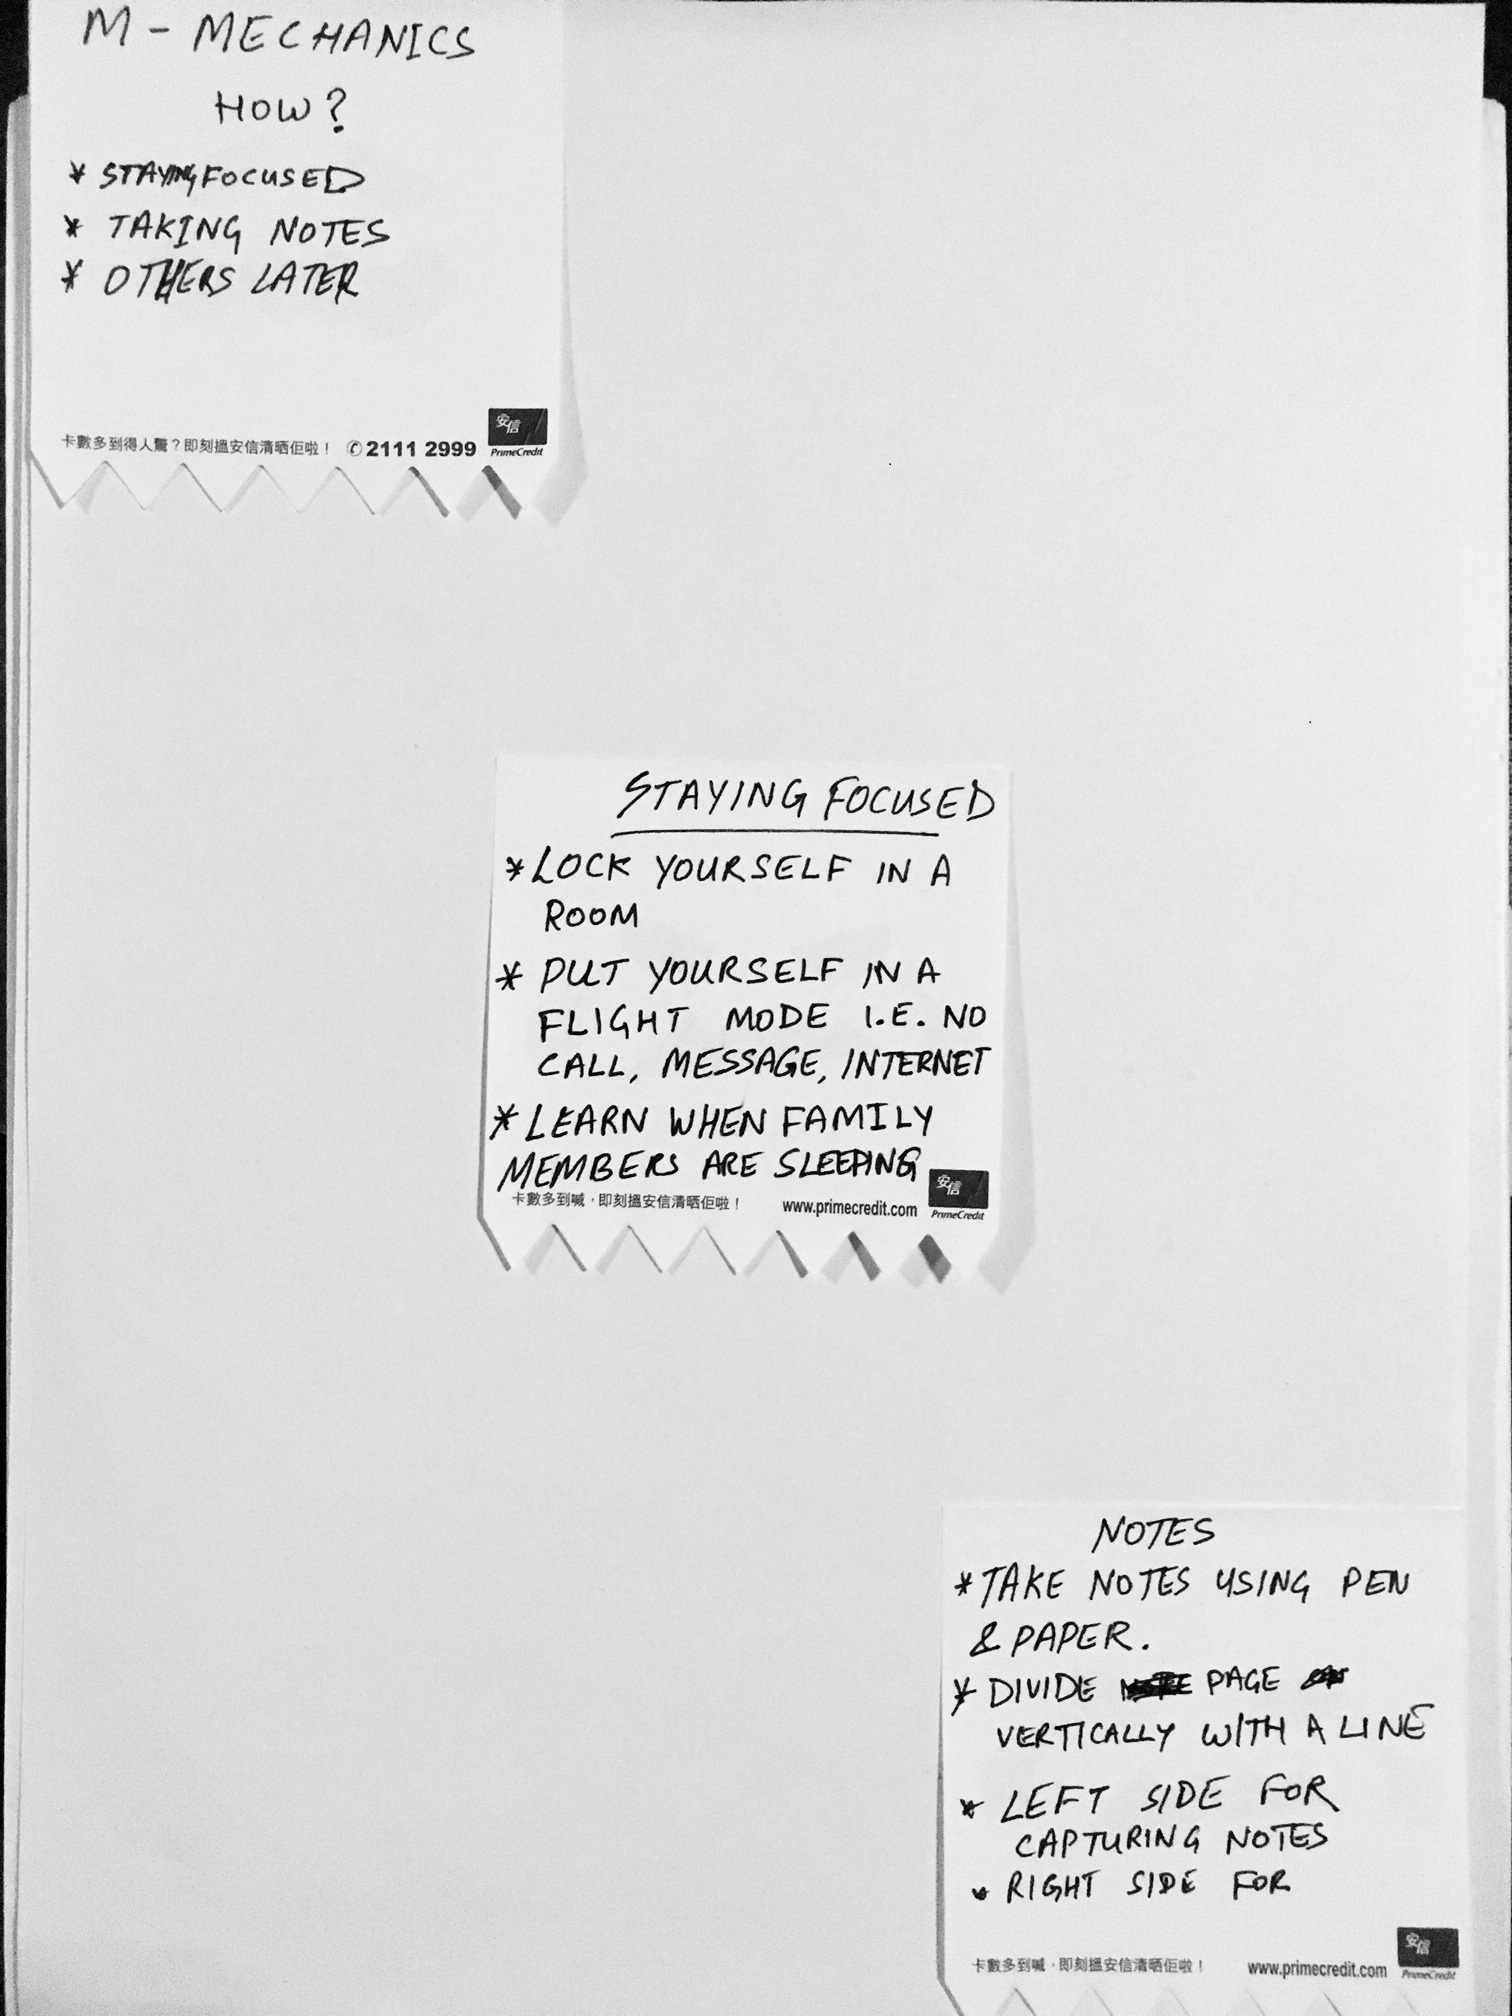 M - MECHANICS
HOW?
* STAYING FOCUSED
* TAKING NOTES
* OTHERS LATER
卡數多到得人驚？即刻搵安信清晒佢啦！ ✆ 2111 2999
安信
PrimeCredit
STAYING FOCUSED
* LOCK YOURSELF IN A
ROOM
* PUT YOURSELF IN A
FLIGHT MODE I.E. NO
CALL, MESSAGE, INTERNET
* LEARN WHEN FAMILY
MEMBERS ARE SLEEPING
卡數多到喊，即刻搵安信清晒佢啦！ www.primecredit.com
安信
PrimeCredit
NOTES
* TAKE NOTES USING PEN
& PAPER.
* DIVIDE PAGE
VERTICALLY WITH A LINE
* LEFT SIDE FOR
CAPTURING NOTES
* RIGHT SIDE FOR
卡數多到喊，即刻搵安信清晒佢啦！ www.primecredit.com
安信
PrimeCredit